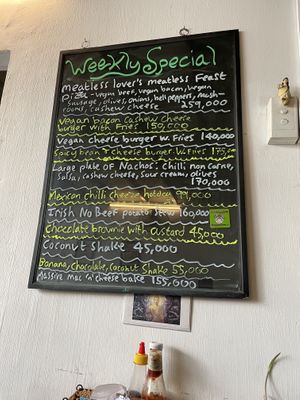 Weekly Special
Meatless lover's meatless Feast
Pizza - vegan beef, vegan bacon, vegan
sausage, olives, onions, bell peppers, mush-
rooms, cashew cheese 259,000
Vegan bacon cashew cheese
burger with Fries 150,000
Vegan cheese burger w. Fries 140,000
Spicy bean & cheese burger w. Fries 175,000
Large plate of Nachos: chilli non carne,
salsa, cashew cheese, sour cream, olives
170,000
Mexican chilli cheese hotdog 99,000
Irish No Beef potato stew 160,000
Chocolate brownie with custard 45,000
Coconut shake 45,000
Banana, chocolate, coconut shake 55,000
Massive mac 'n' cheese bake 155,000